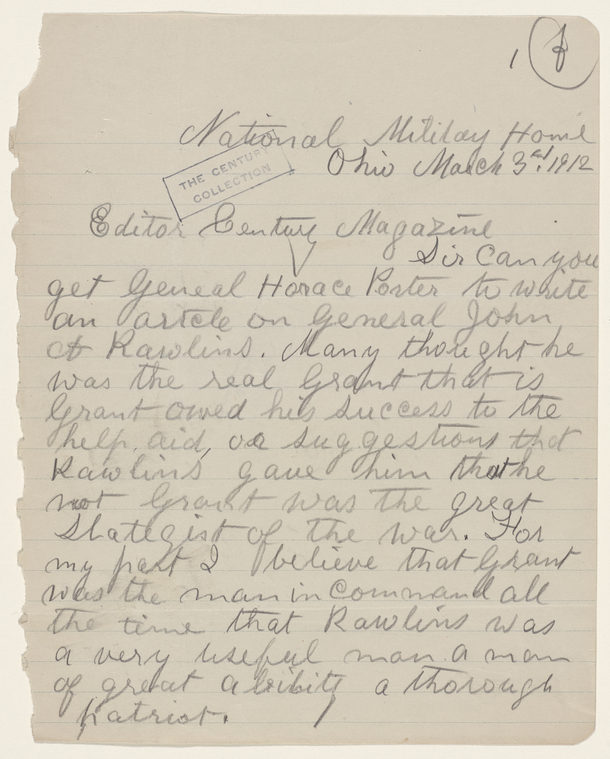 1 f
National Militay Home
THE CENTURY
COLLECTION
Ohio March 3rd. 1912
Editor Century Magazine
Sir Can you
get Geneal Horace Porter to write
an artcle on General John
A Rawlins. Many thought he
was the real Grant that is
Grant owed his success to the
help, aid, or suggestions that
Rawlins gave him that he
not Grant was the great
Stategist of the war. For
my part I believe that Grant
was the man in Command all
the time that Rawlins was
a very useful man a man
of great abibity a thorough
patriot.